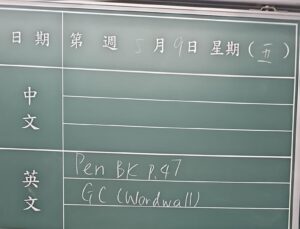 日期 第 週 5月9日 星期(五)
中文
英文
Pen BK P.47
GC (Wordwall)